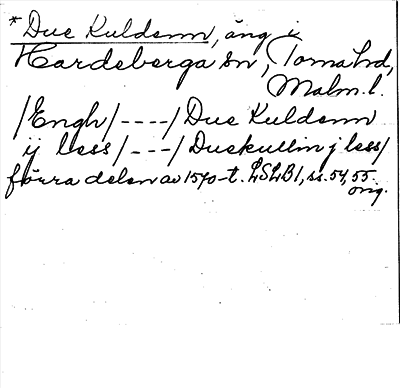 *Due Kuldenn, äng i
Hardeberga sn, Torna hd,
Malm. l.
/Engh/----/Due Kuldenn
ij less/---/Duekullin j less/
förra delen av 1570-t. LSLB1, ss. 54, 55.
orig.